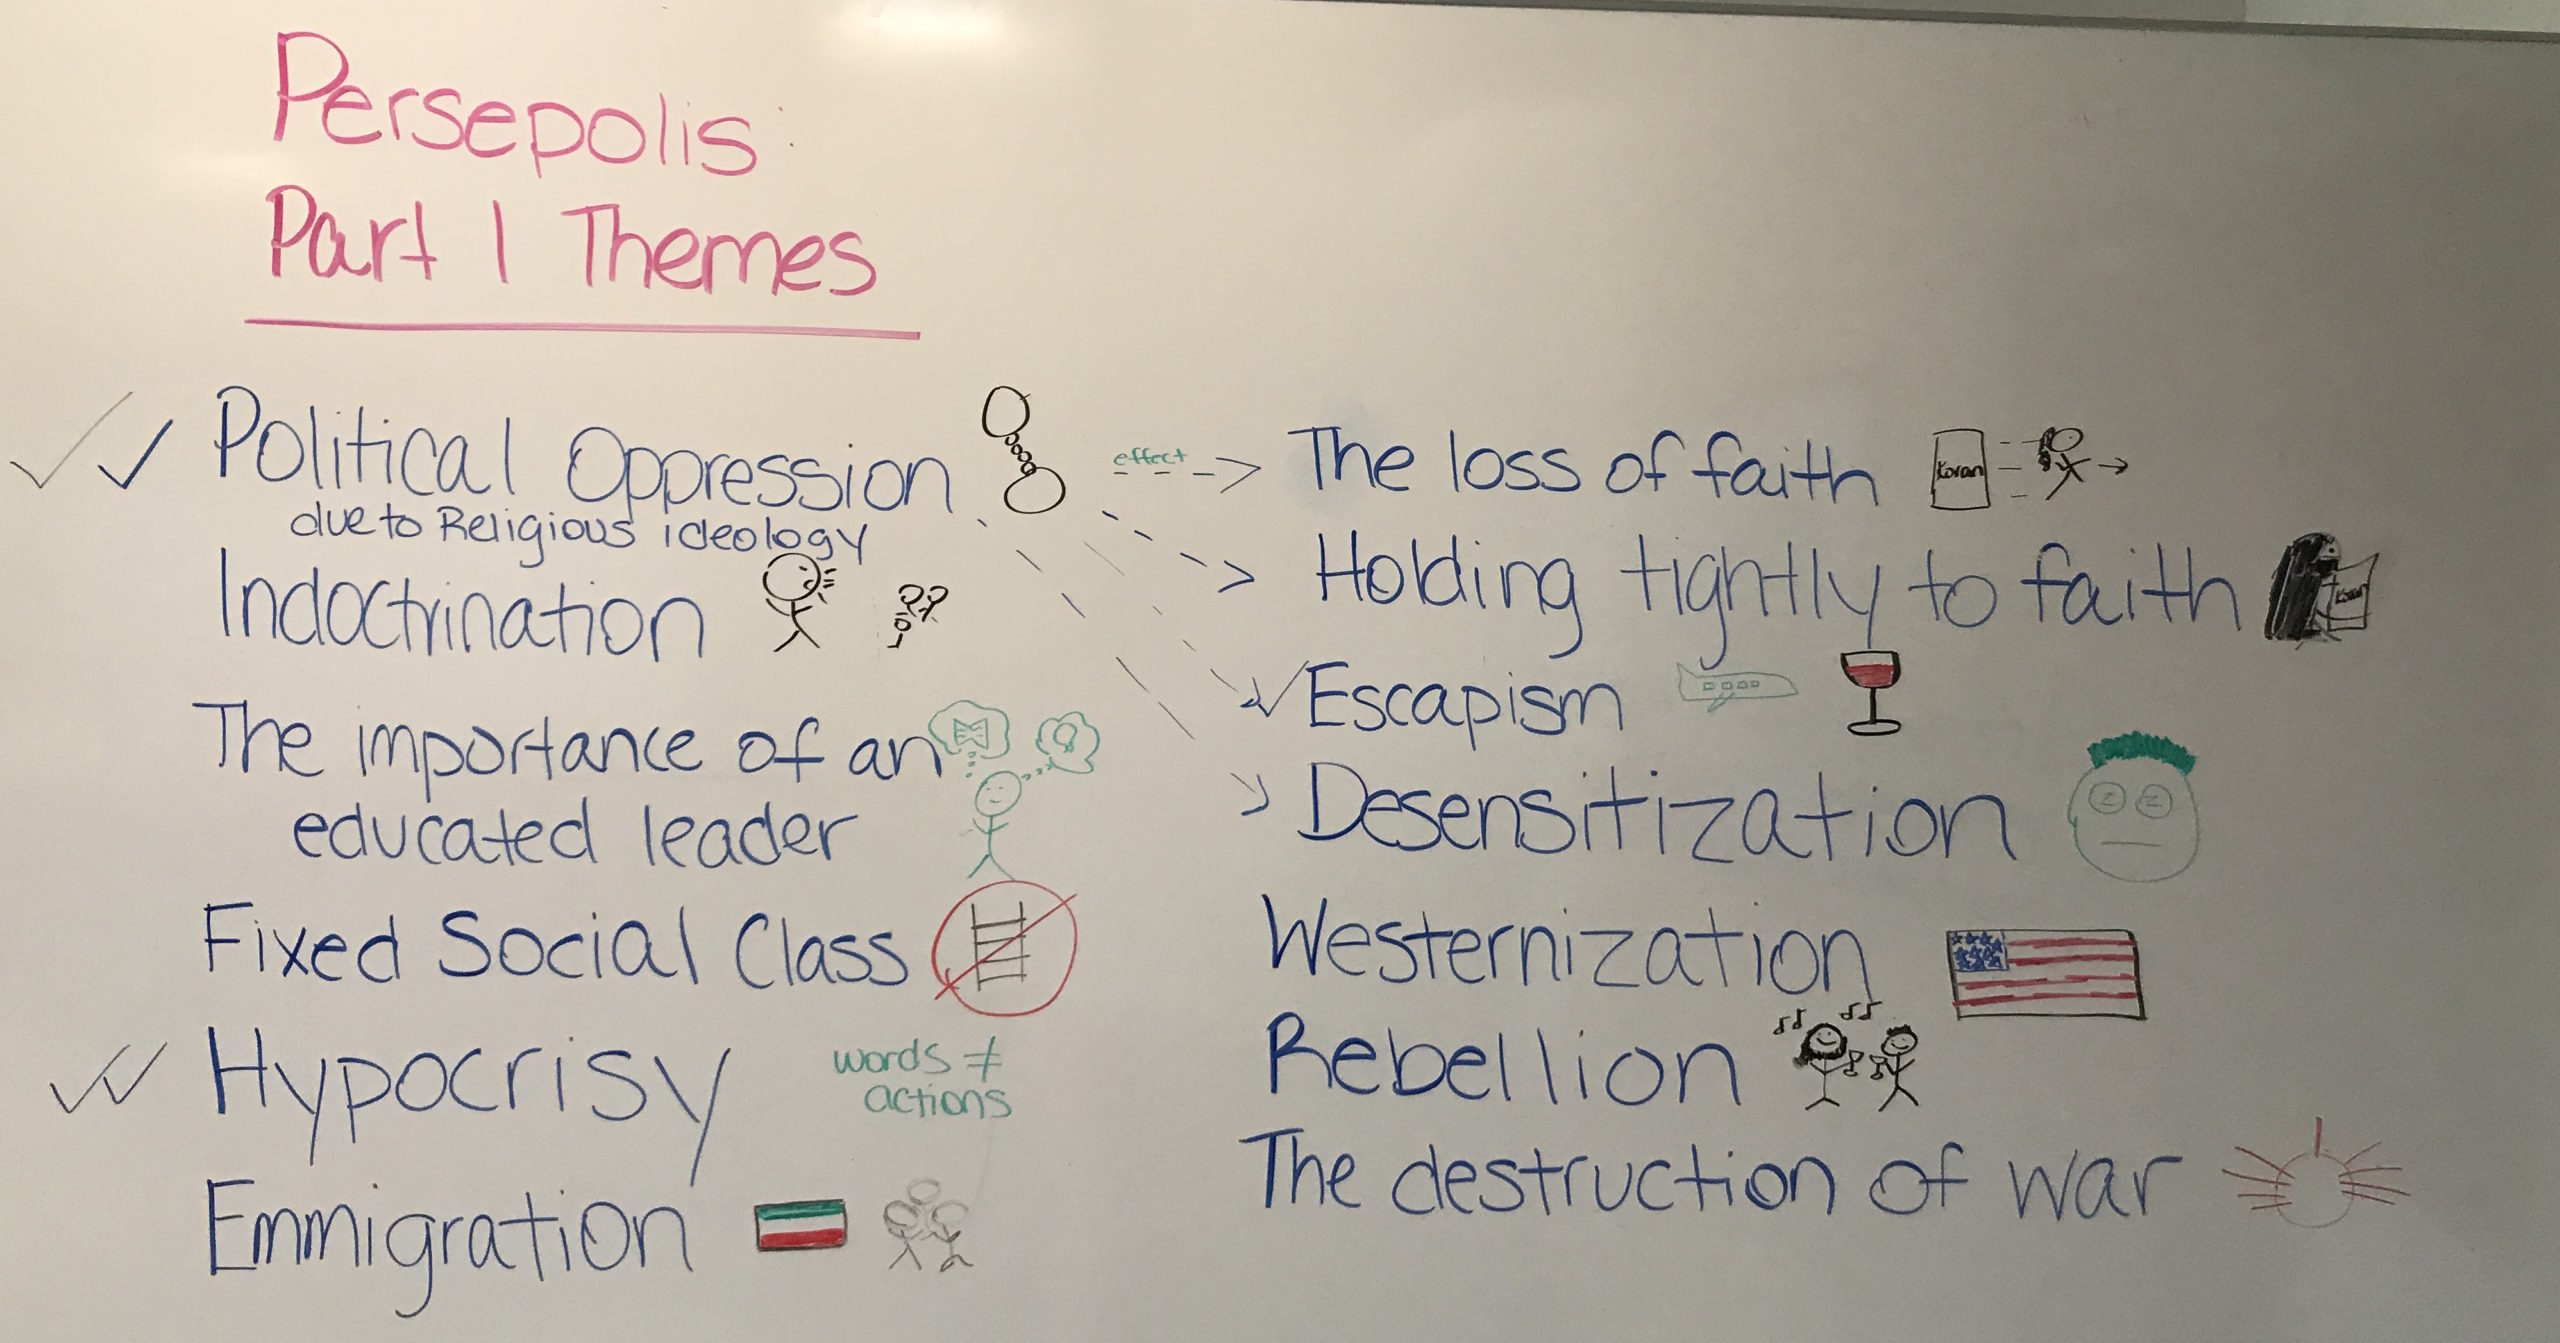 Persepolis:
Part 1 Themes
Political Oppression
due to Religious ideology
Indoctrination
The importance of an
educated leader
Fixed Social Class
Hypocrisy
words ≠
actions
Emmigration
effect
The loss of faith
Koran
Holding tightly to faith
Koran
Escapism
Desensitization
Westernization
Rebellion
The destruction of war